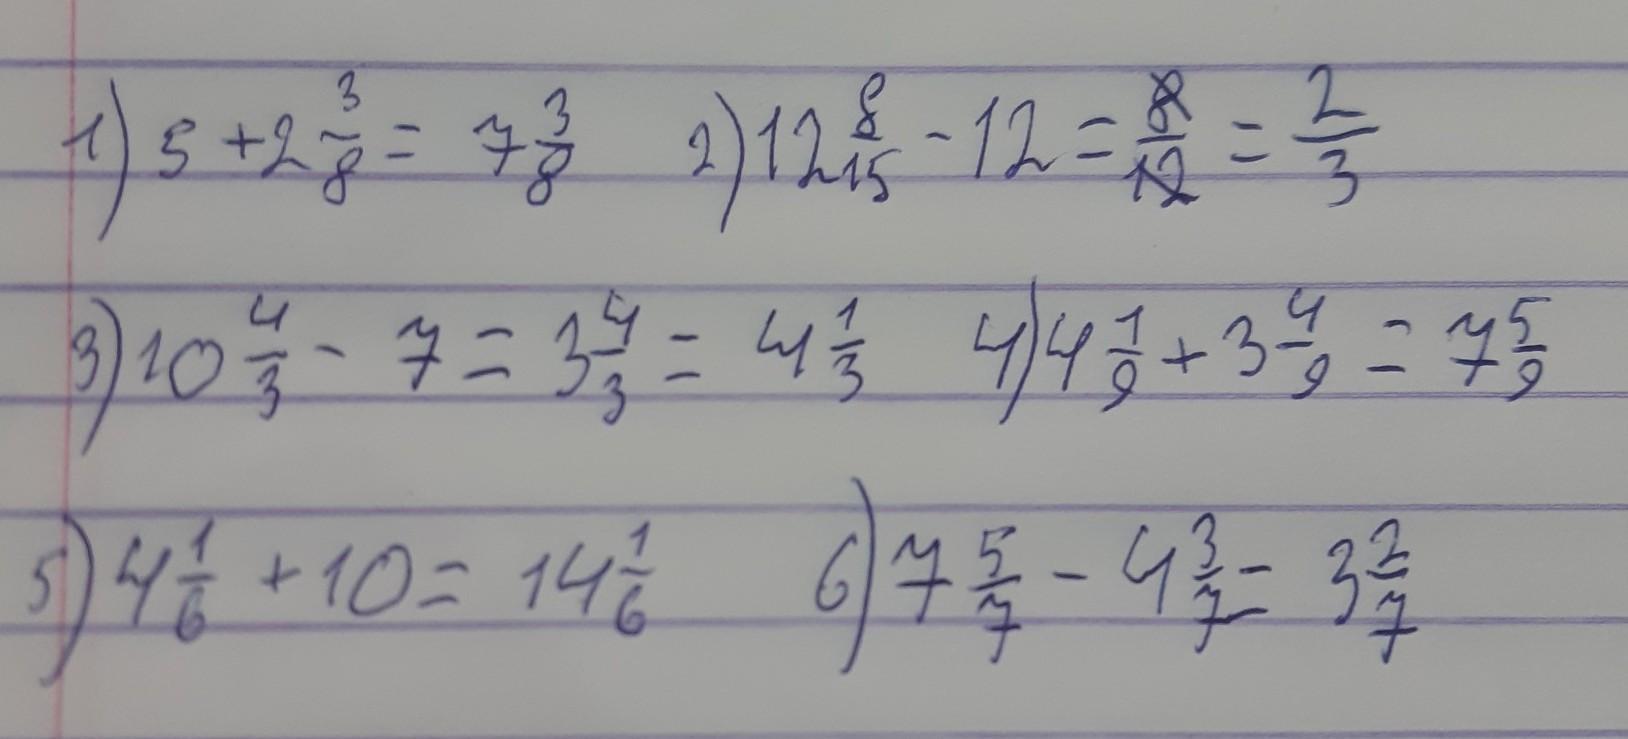 1) 5 + 2 3/8 = 7 3/8 2) 12 8/15 - 12 = 8/12 = 2/3
3) 10 4/3 - 7 = 3 4/3 = 4 1/3 4) 4 1/9 + 3 4/9 = 7 5/9
5) 4 1/6 + 10 = 14 1/6 6) 7 5/7 - 4 3/7 = 3 2/7